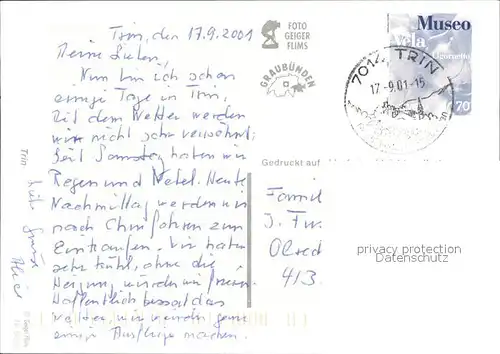 Trin, den 17.9.2001
Meine Lieben,
Nun bin ich schon
einige Tage in Trin,
Mit dem Wetter werden
wir nicht sehr verwöhnt;
Seit Samstag haben wir
Regen und Nebel. Heute
Nachmittag werden wir
nach Chur fahren zum
Einkaufen. Wir haben
sehr kühl, ohne die
Heizung würden wir frieren.
Hoffentlich bessert das
Wetter, wir würden gern
einige Ausflüge machen.
Liebe Grüsse
Trin
FOTO
GEIGER
FLIMS
GRAUBÜNDEN
Museo
Vela
Ligornetto
70
7014 TRIN
17-9.01-15
Gedruckt auf
Famil
J. Fu
413
privacy protection
Datenschutz